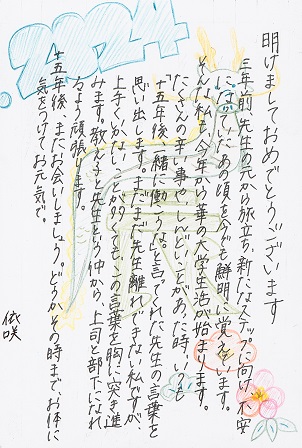 2024
明けましておめでとうございます
三年前、先生の元から旅立ち、新たなステップに向け、不安
になっていたあの頃を今でも鮮明に覚えています。
そんな私も、今年から華の大学生活が始まります。
たくさんの辛い事やしんどいことがあった時、いつも
「十五年後、一緒に働こうな」と言ってくれた先生の言葉を
思い出します。まだまだ先生離れできない私ですが、
上手くいかないことが多々あっても、この言葉を胸に突き進
みます。教え子と先生という仲から、上司と部下になれ
るよう頑張ります。
十五年後、またお会いしましょう。どうかその時まで、お体に
気をつけてお元気で。
依咲